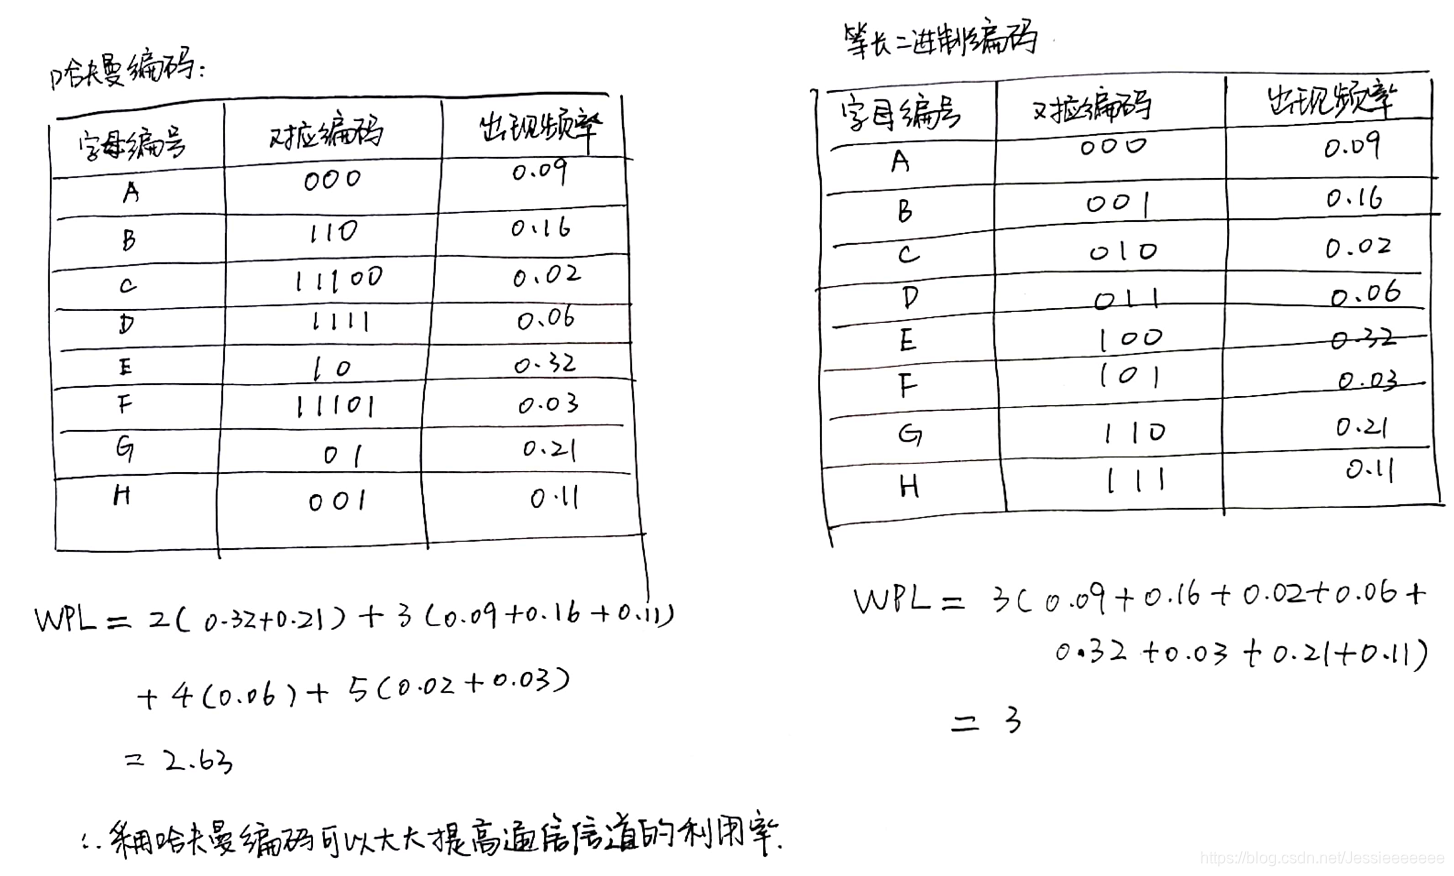 哈夫曼编码:
字母编号 对应编码 出现频率
A 000 0.09
B 110 0.16
C 11100 0.02
D 1111 0.06
E 10 0.32
F 11101 0.03
G 01 0.21
H 001 0.11
WPL = 2(0.32+0.21)+3(0.09+0.16+0.11)
+4(0.06)+5(0.02+0.03)
= 2.63
等长二进制编码
字母编号 对应编码 出现频率
A 000 0.09
B 001 0.16
C 010 0.02
D 011 0.06
E 100 0.32
F 101 0.03
G 110 0.21
H 111 0.11
WPL = 3(0.09+0.16+0.02+0.06+
0.32+0.03+0.21+0.11)
= 3
∴采用哈夫曼编码可以大大提高通信信道的利用率.
https://blog.csdn.net/Jessieeeeeee